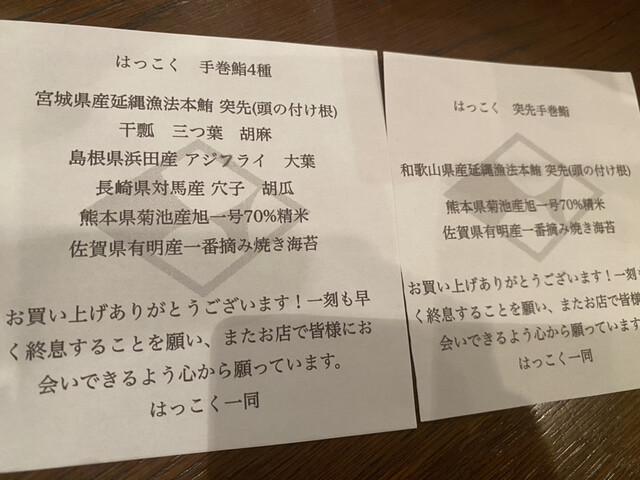 はっこく　手巻鮨4種
宮城県産延縄漁法本鮪 突先(頭の付け根)
干瓢　三つ葉　胡麻
島根県浜田産 アジフライ　大葉
長崎県対馬産 穴子　胡瓜
熊本県菊池産旭一号70%精米
佐賀県有明産一番摘み焼き海苔
お買い上げありがとうございます！一刻も早
く終息することを願い、またお店で皆様にお
会いできるよう心から願っています。
はっこく一同
はっこく　突先手巻鮨
和歌山県産延縄漁法本鮪 突先(頭の付け根)
熊本県菊池産旭一号70%精米
佐賀県有明産一番摘み焼き海苔
お買い上げありがとうございます！一刻
く終息することを願い、またお店で皆様
会いできるよう心から願っています
はっこく一同